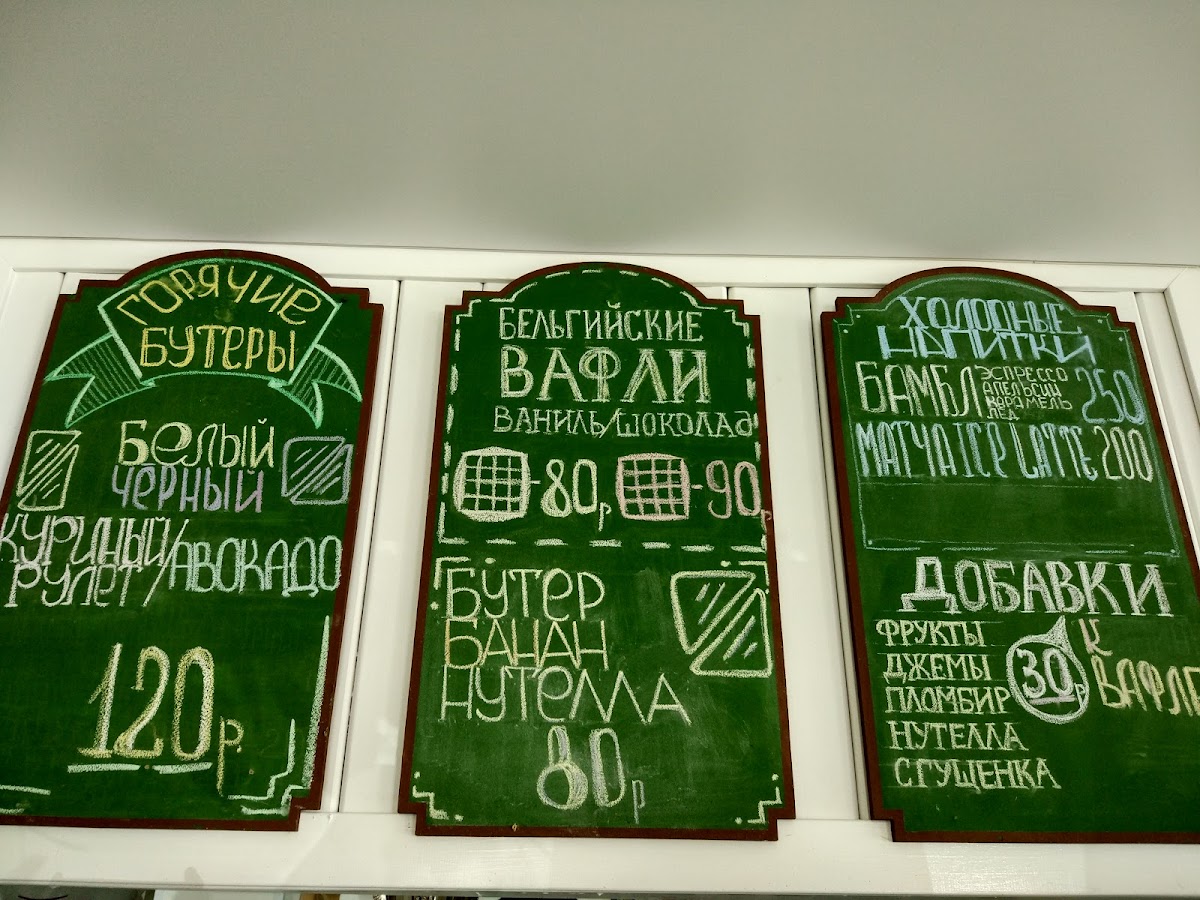 ГОРЯЧИЕ
БУТЕРЫ
БЕЛЫЙ
ЧЁРНЫЙ
КУРИНЫЙ
РУЛЕТ/АВОКАДО
120р.
БЕЛЬГИЙСКИЕ
ВАФЛИ
ВАНИЛЬ/ШОКОЛАД
-80р -90р
БУТЕР
БАНАН
НУТЕЛЛА
80р
ХОЛОДНЫЕ
НАПИТКИ
БАМБЛ ЭСПРЕССО
АПЕЛЬСИН
КАРАМЕЛЬ
ЛЁД
250
МАТЧА ICE LATTE 200
ДОБАВКИ
К
ВАФЛЕ
ФРУКТЫ
ДЖЕМЫ
ПЛОМБИР
НУТЕЛЛА
СГУЩЕНКА
30р